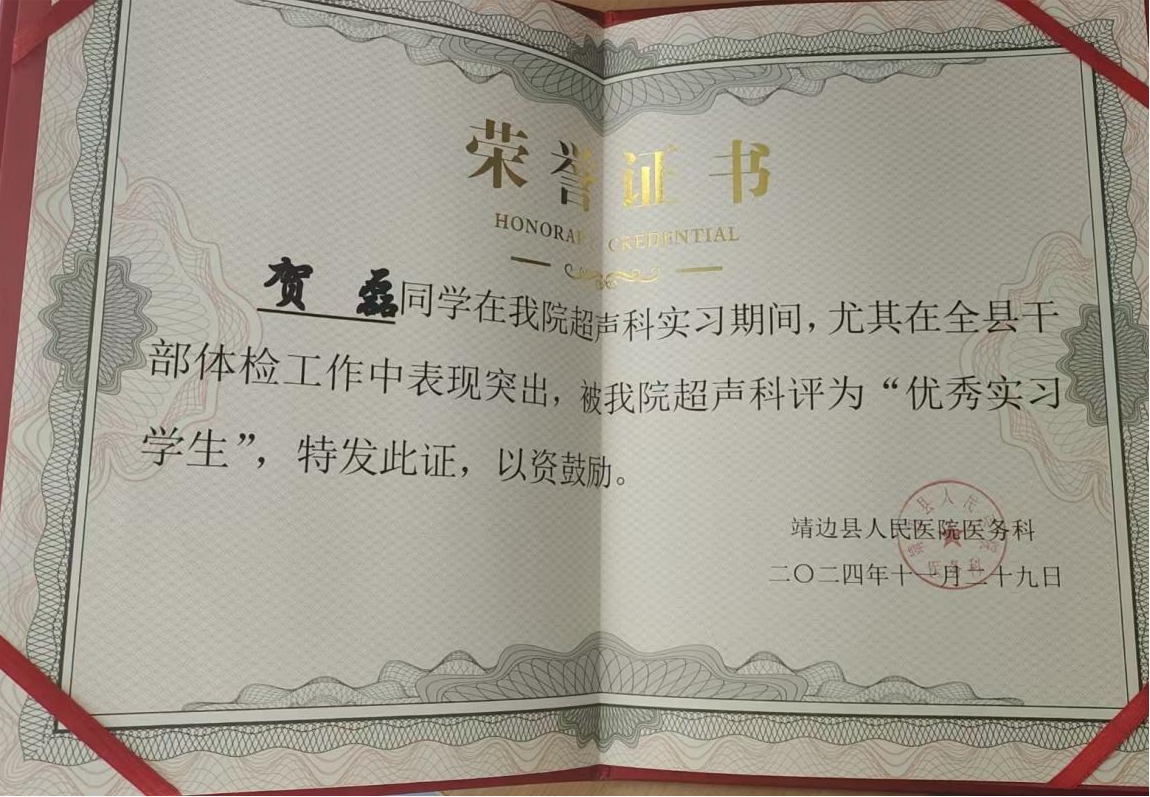 荣誉证书
HONORARY CREDENTIAL
贺 磊同学在我院超声科实习期间，尤其在全县干
部体检工作中表现突出，被我院超声科评为“优秀实习
学生”，特发此证，以资鼓励。
靖边县人民医院医务科
二〇二四年十一月二十九日